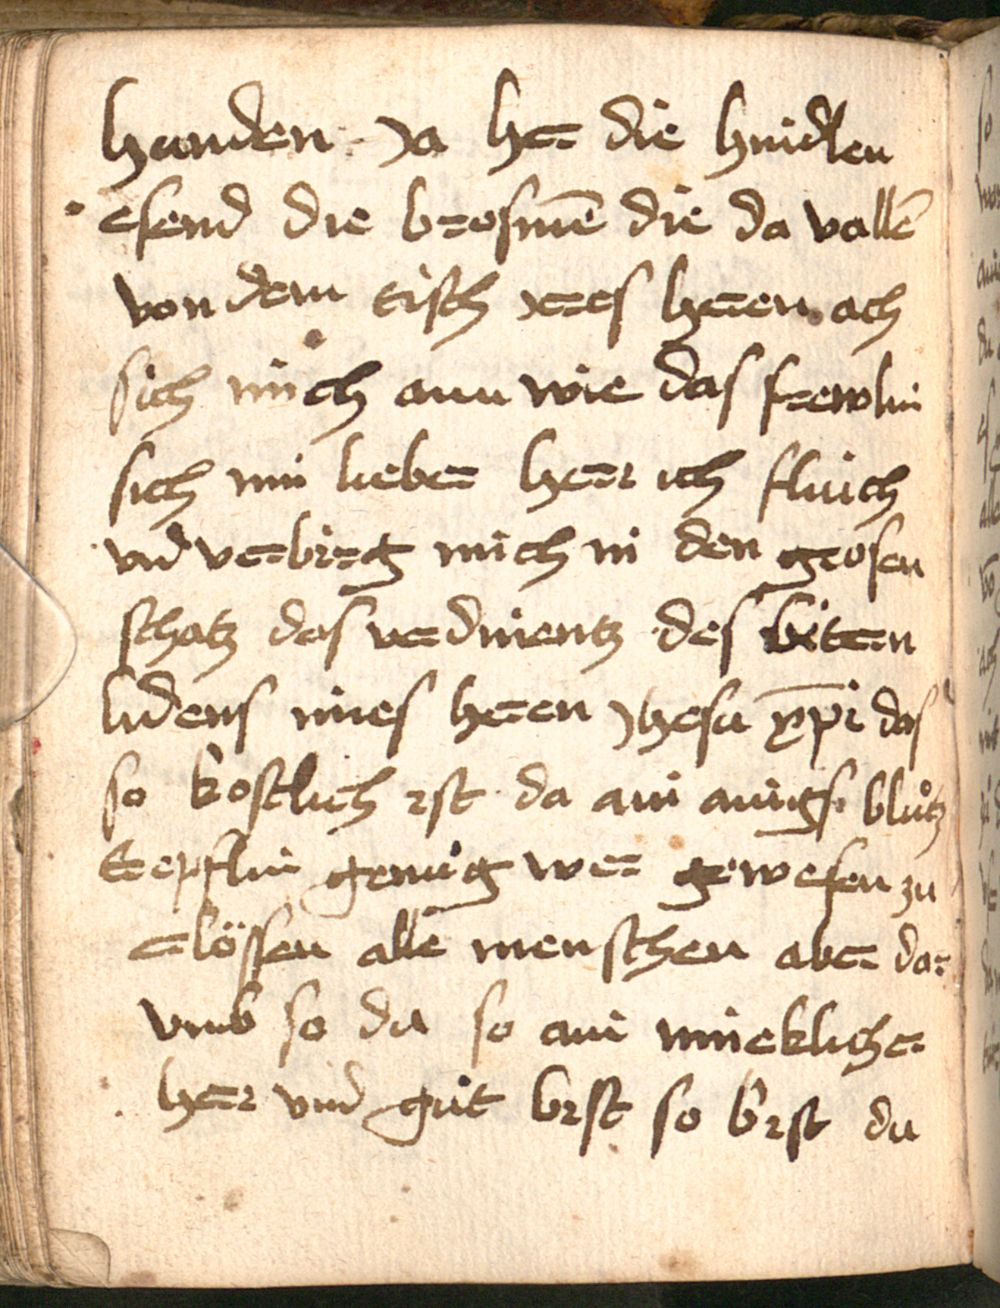 hunden Ja her die hindlen
esend die brosmē die da vallē
von dem tisch ires heren ach
sich mich ann wie das frewlin
sich min lieber herr ich fluich
vnd verbirg mich in den grosen
schatz des verdinentz des biteren
lidens mines heren Jhesu xp̄i das
so kostlich ist da ain ainigs blůtz
trepflin genůg wer gewesen zu
erlössen alle menschen aber dar
vmb so du so ain mircklicher
herr vnd gůt bist so bist du